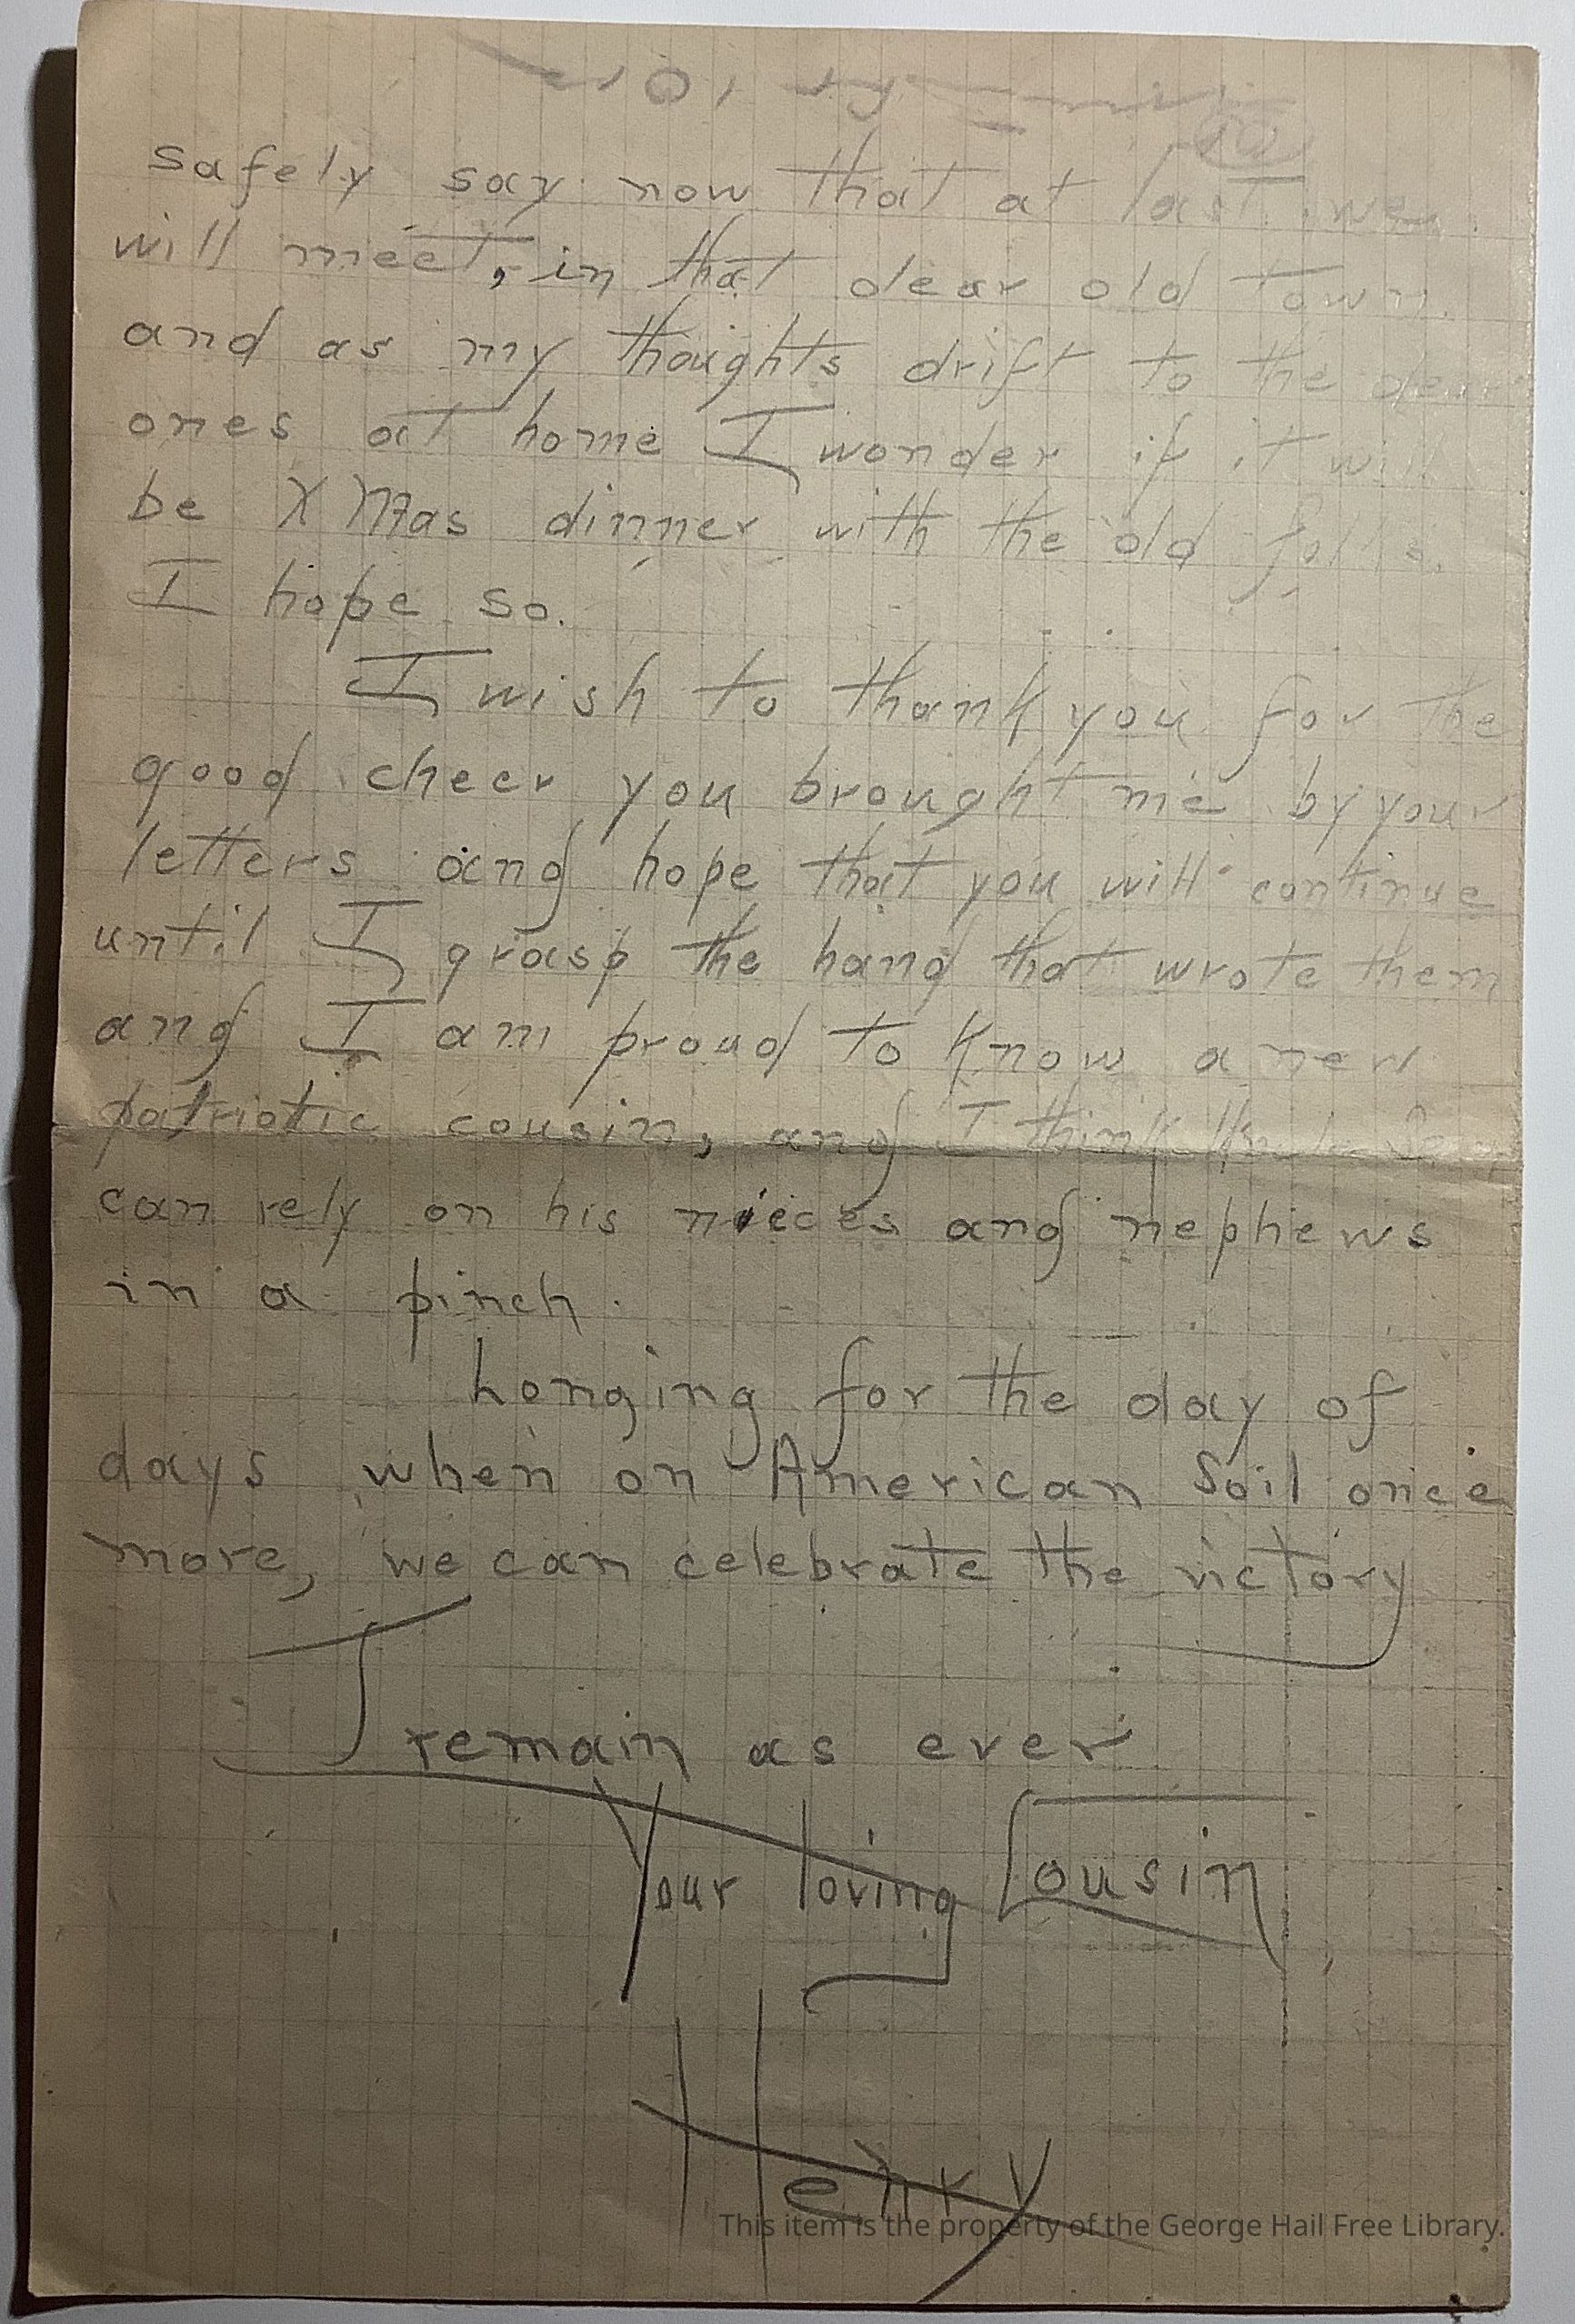 safely say now that at last we
will meet, in that dear old town
and as my thoughts drift to the dear
ones at home I wonder if it will
be XMas dinner with the old folks.
I hope so.
I wish to thank you for the
good cheer you brought me by your
letters and hope that you will continue
until I grasp the hand that wrote them
and I am proud to know a new
patriotic cousin, and I think
can rely on his nieces and nephews
in a pinch.
Longing for the day of
days when on American Soil once
more, we can celebrate the victory
I remain as ever
Your loving Cousin
Henry
This item is the property of the George Hail Free Library.